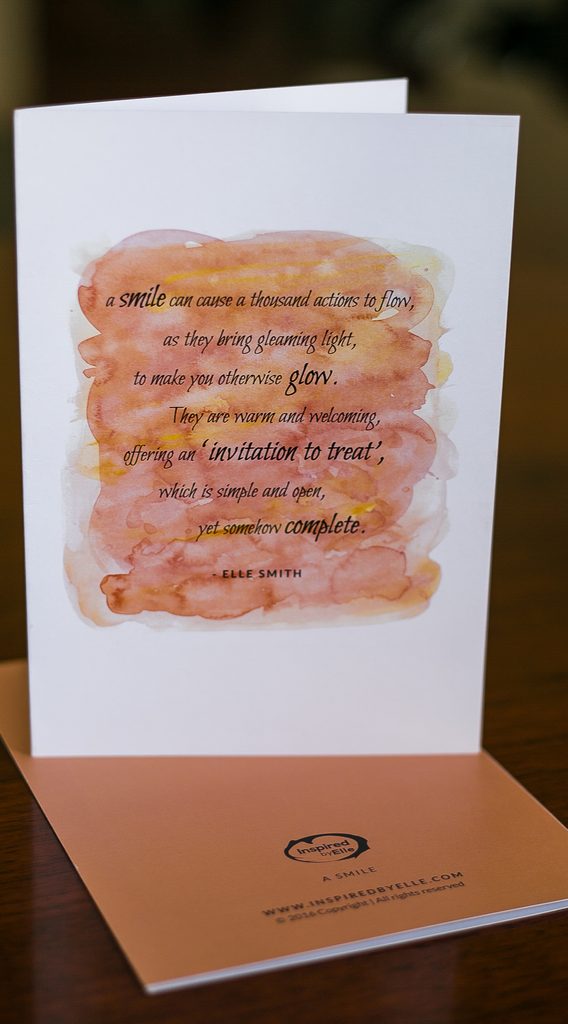 a smile can cause a thousand actions to flow,
as they bring gleaming light,
to make you otherwise glow.
They are warm and welcoming,
offering an ‘invitation to treat’,
which is simple and open,
yet somehow complete.
- ELLE SMITH
Inspired
byElle
A SMILE
WWW.INSPIREDBYELLE.COM
© 2016 Copyright | All rights reserved